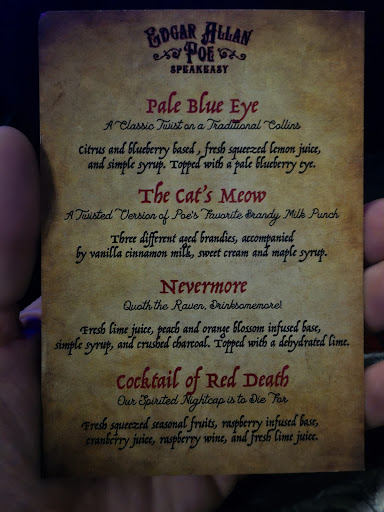 Edgar Allan
Poe
Speakeasy
Pale Blue Eye
A Classic Twist on a Traditional Collins
Citrus and blueberry based , fresh squeezed lemon juice,
and simple syrup. Topped with a pale blueberry eye.
The Cat's Meow
A Twisted Version of Poe's Favorite Brandy Milk Punch
Three different aged brandies, accompanied
by vanilla cinnamon milk, sweet cream and maple syrup.
Nevermore
Quoth the Raven, Drinksomemore!
Fresh lime juice, peach and orange blossom infused base,
simple syrup, and crushed charcoal. Topped with a dehydrated lime.
Cocktail of Red Death
Our Spirited Nightcap is to Die For
Fresh squeezed seasonal fruits, raspberry infused base,
cranberry juice, raspberry wine, and fresh lime juice.